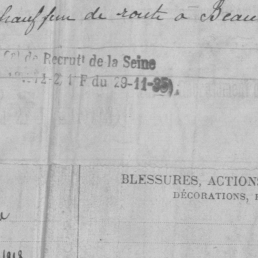 chauffeur de route à Beau
de Recrut' de la Seine
du 29-11-35).
BLESSURES, ACTION
DÉCORATIONS,
1918